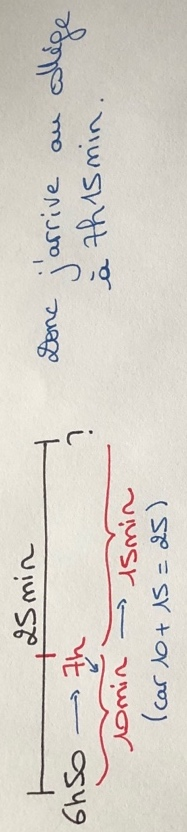 25min
6h50 → 7h ?
10min → 15min
(car 10 + 15 = 25)
Donc j'arrive au collège
à 7h15min.